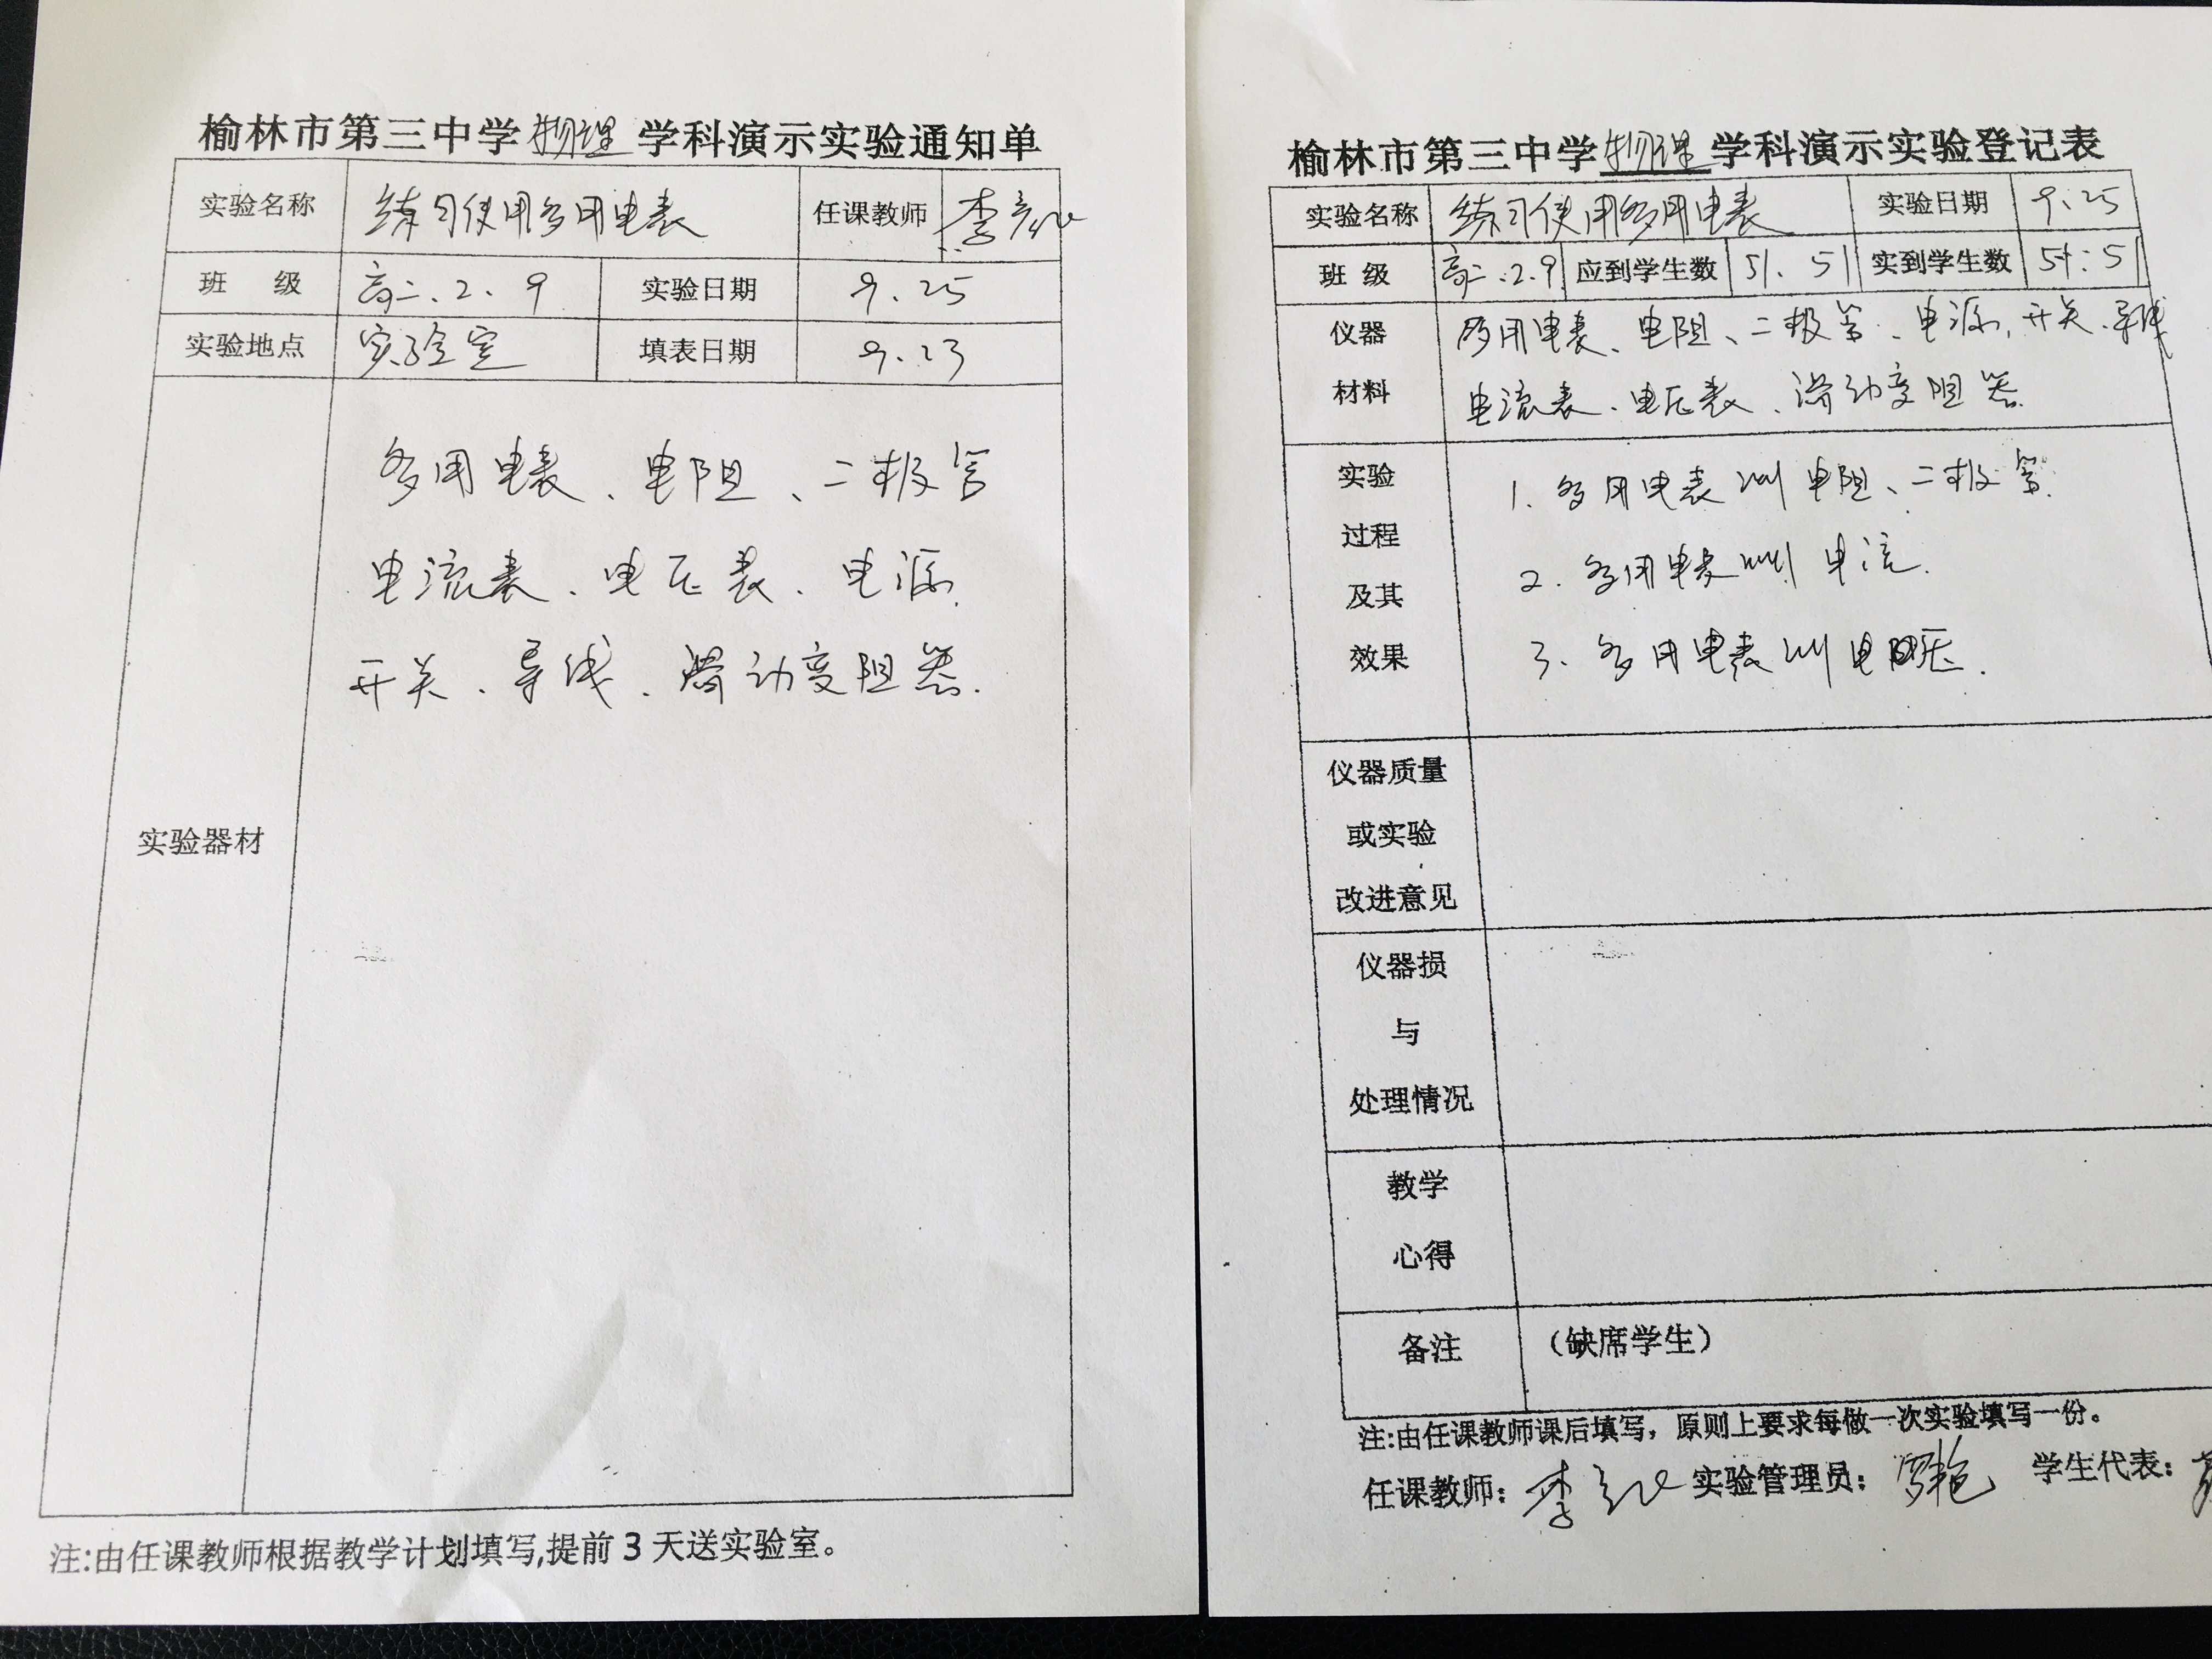 榆林市第三中学物理学科演示实验通知单
实验名称 练习使用多用电表 任课教师 李
班 级 高二、2、9 实验日期 9.25
实验地点 实验室 填表日期 9.23
实验器材
多用电表、电阻、二极管
电流表、电压表、电源、
开关、导线、滑动变阻器.
注:由任课教师根据教学计划填写,提前3天送实验室。
榆林市第三中学物理学科演示实验登记表
实验名称 练习使用多用电表 实验日期 9.25
班 级 高二.2.9 应到学生数 51、51 实到学生数 51:51
仪器 多用电表、电阻、二极管、电源,开关、导线
材料 电流表、电压表、滑动变阻器
实验 1.多用电表测电阻、二极管.
过程 2.多用电表测电流.
及其
效果 3、多用电表测电压.
仪器质量
或实验
改进意见
仪器损
与
处理情况
教学
心得
备注 (缺席学生)
注:由任课教师课后填写,原则上要求每做一次实验填写一份。
任课教师: 李 实验管理员: 学生代表: